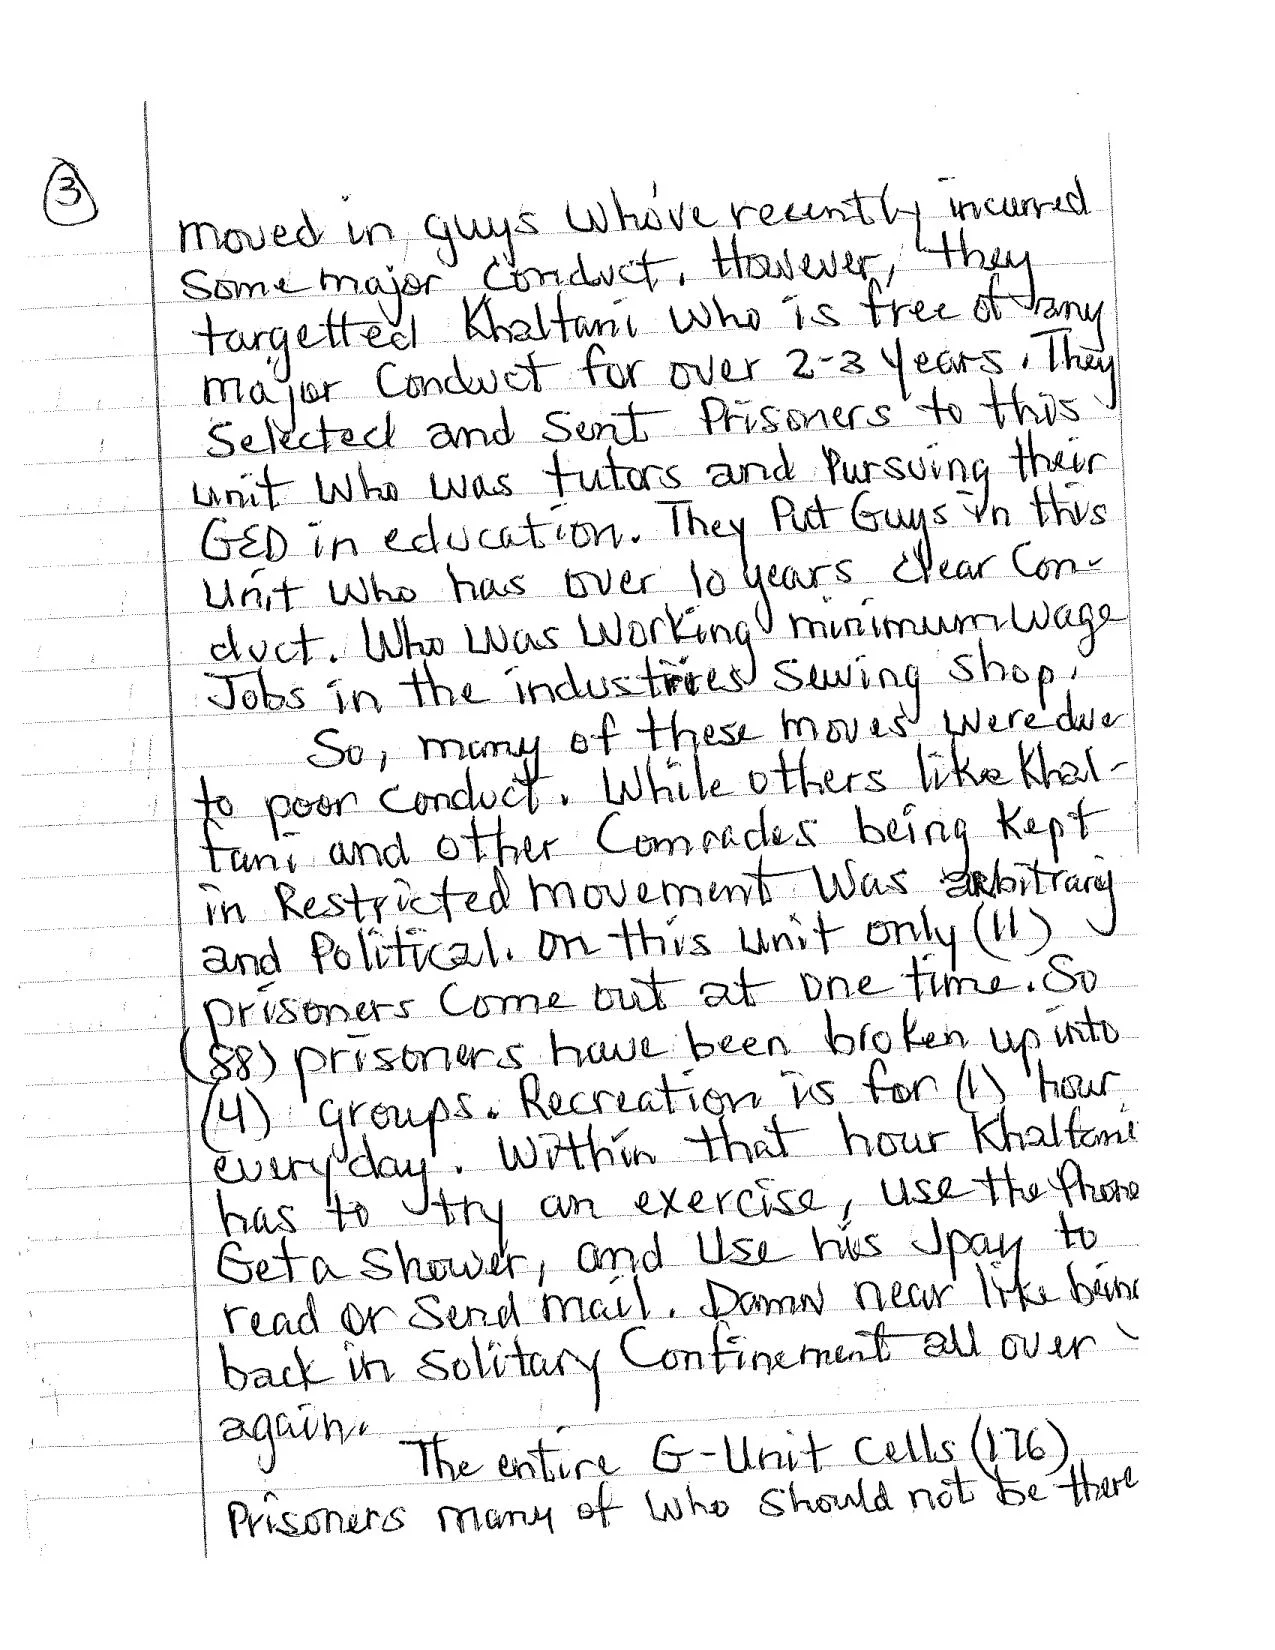 3
moved in guys who've recently incurred
some major conduct. However, they
targetted Khaltani who is free of any
major Conduct for over 2-3 years. They
Selected and Sent Prisoners to this
unit who was tutors and Pursuing their
GED in education. They Put Guys in this
Unit who has over 10 years clear Con-
duct. Who was working minimum wage
Jobs in the industries Sewing Shop.
So, many of these moves were due
to poor conduct. While others like Khal-
tani and other Comrades being kept
in Restricted movement was arbitrary
and Political. On this unit only (11)
prisoners come out at one time. So
(88) prisoners have been broken up into
(4) groups. Recreation is for (1) hour
everyday. Within that hour Khaltani
has to try an exercise, use the Phone
Get a Shower, and Use his Jpay to
read or Send mail. Damn near like being
back in Solitary Confinement all over
again.
The entire G-Unit Cells (176)
Prisoners many of who should not be there